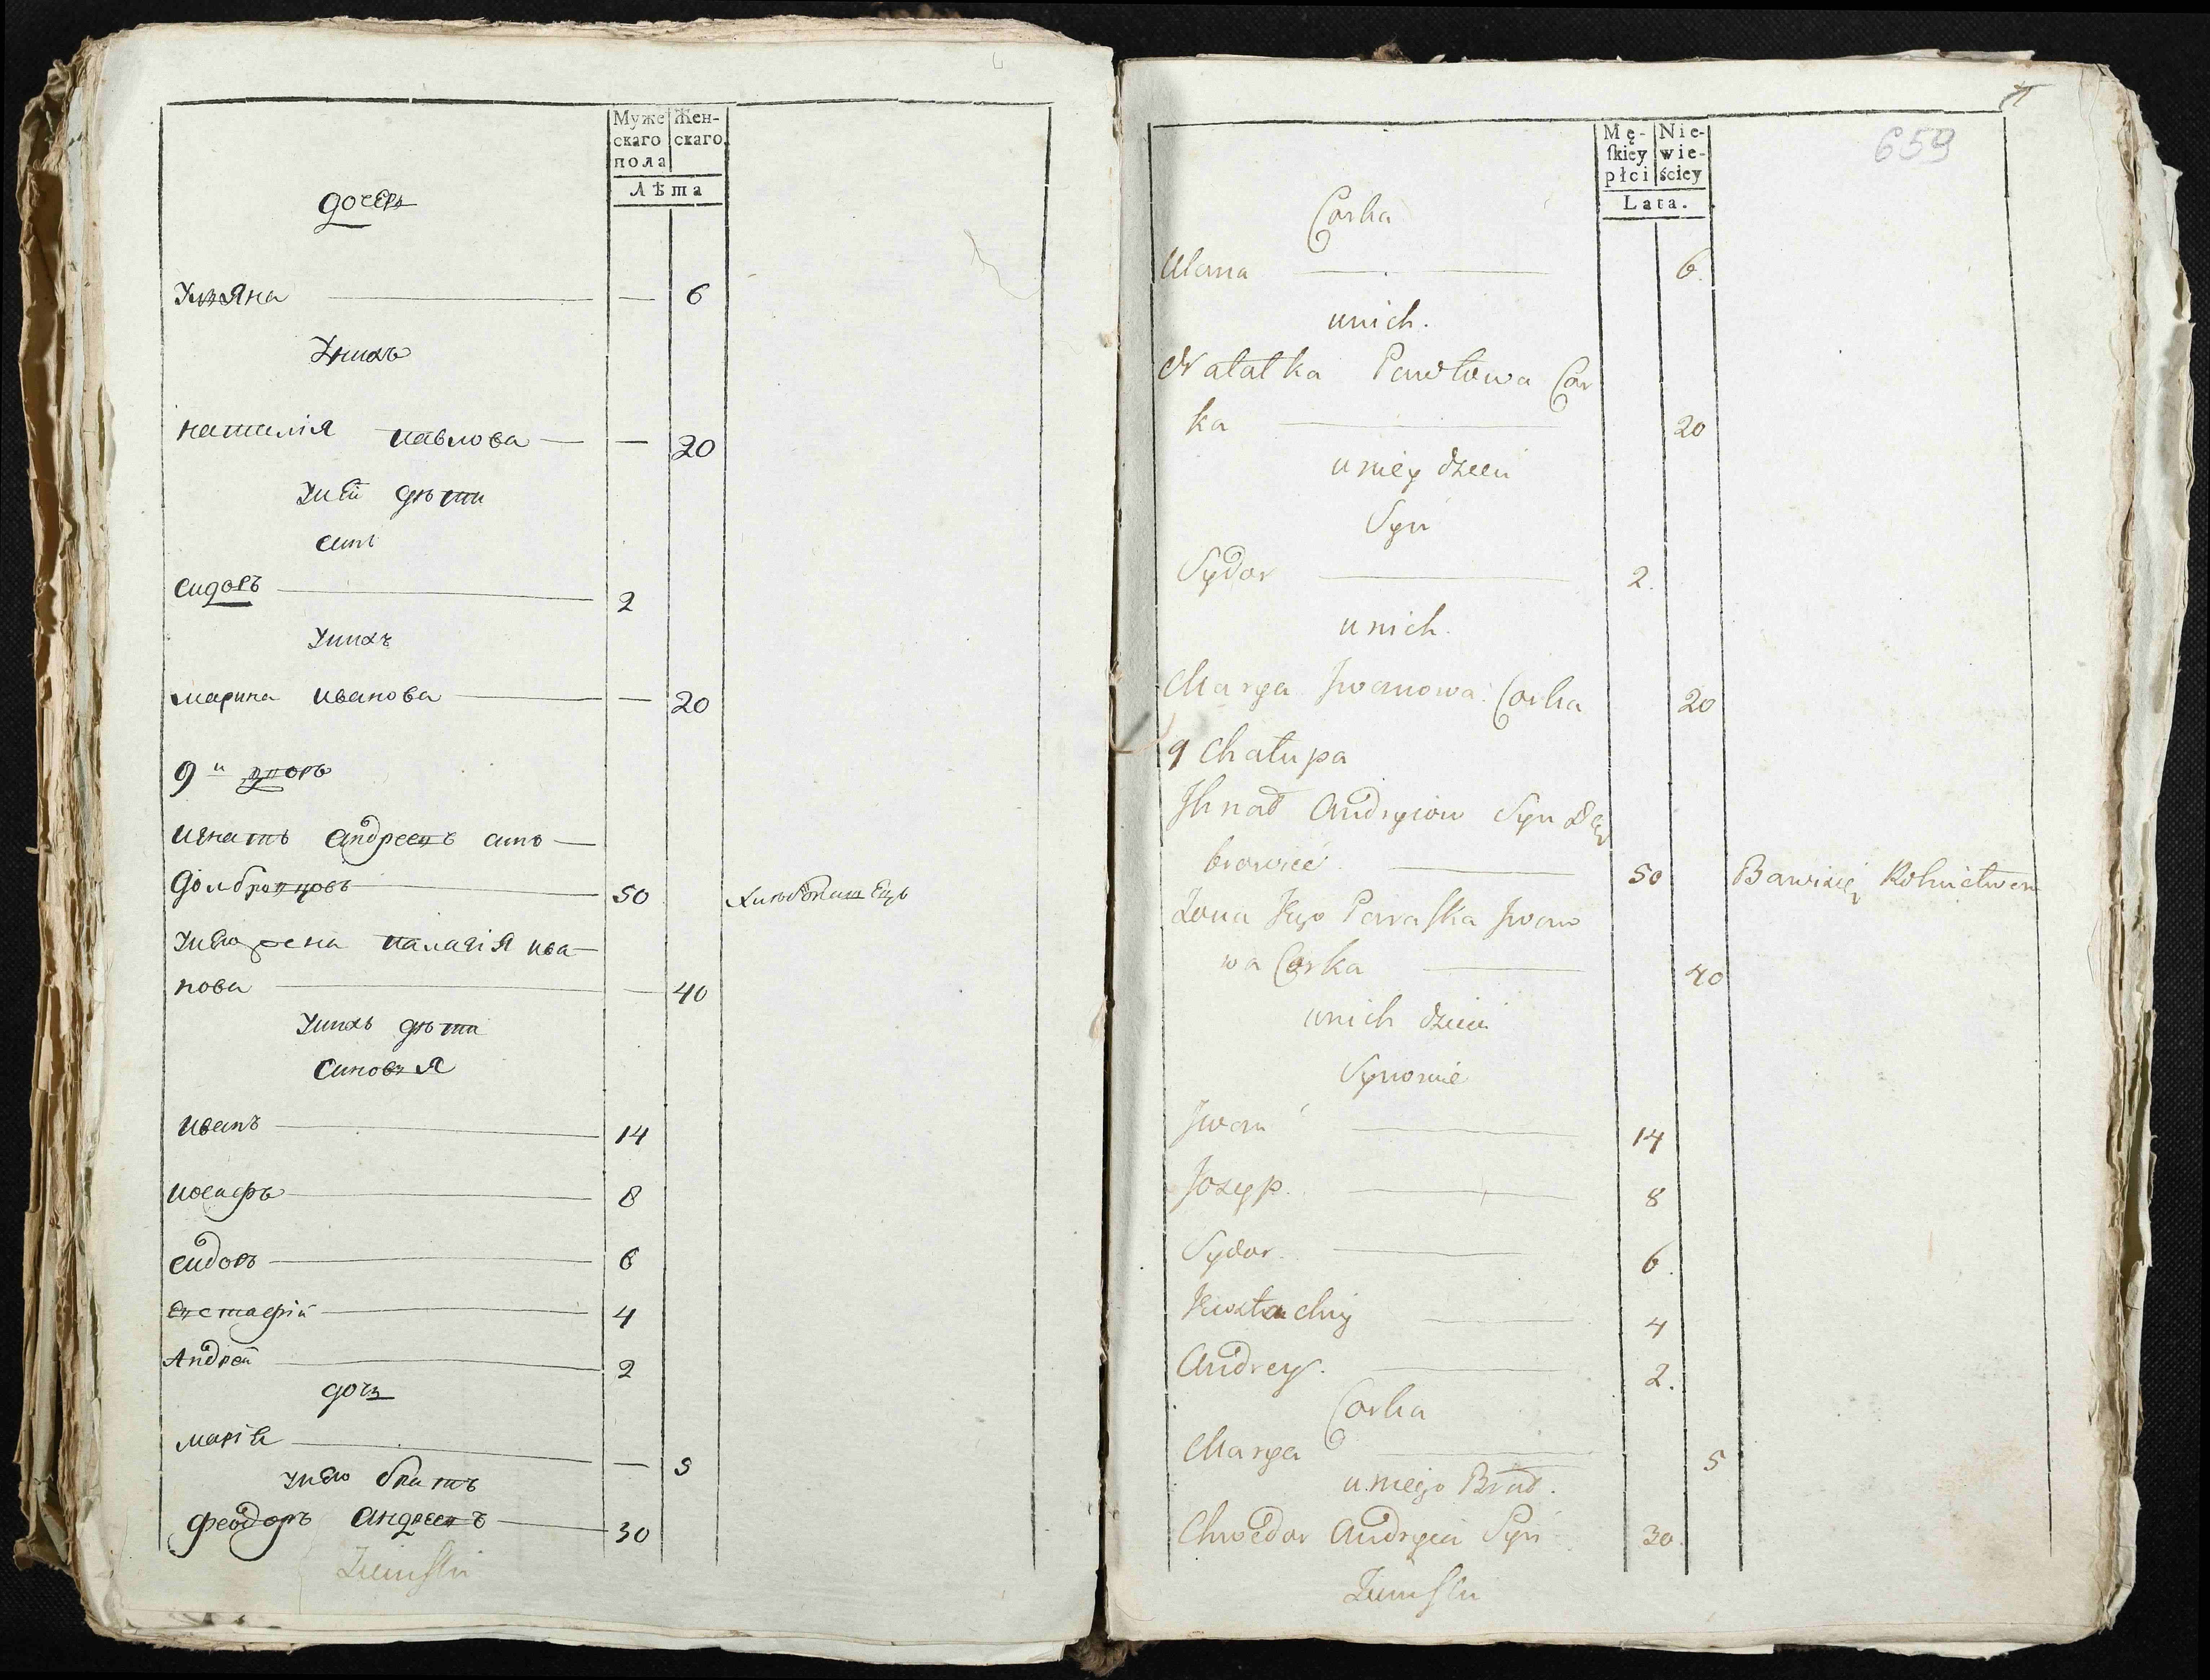 Муже
скаго
пола
Жен-
скаго
Лѣта
дочерь
Ульяна — — 6
Унихъ
наталія павлова — — 20
Унеи дѣти
синъ
сидоръ — 2
Унихъ
марина иванова — — 20
9й дворъ
игнатъ андреевъ синъ —
50 хлѣбопашецъ
Унего жена палагія ива—
нова — — 40
Унихъ дѣти
синовья
иванъ — 14
иосифъ — 8
сидоръ — 6
евстафій — 4
Андрей — 2
дочь
марія — — 5
унего братъ
феодоръ андреевъ — 30
Mę-
skiey
płci
Nie-
wie-
ściey
Lata.
659
Corka
Ulana — 6.
unich.
Natalka Pawłowa Cor
ka — 20
uniey dzieci
Syn
Sydor — 2.
unich.
Marya Jwanowa Corka 20
9 Chałupa
Jhnat Andryiow Syn Dąb
browicć — 50 Bawisię Rolnictwem
Zona Jego Paraska Jwano
wa Corka — 40
unich dzieci
Synowie
Jwan — 14
Jozyp. — 8
Sydor. — 6.
Jewstachiy — 4
Andrey. — 2.
Corka
Marya — 5
uniego Brat.
Chwedor Andryia Syn 30.